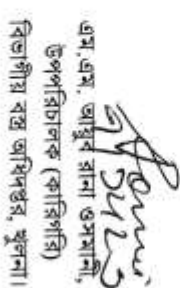 এম.এম. আব্দুর রানা ওসমানী,
উপপরিচালক (কারিগরি)
বিভাগীয় বস্ত্র অধিদপ্তর, খুলনা।